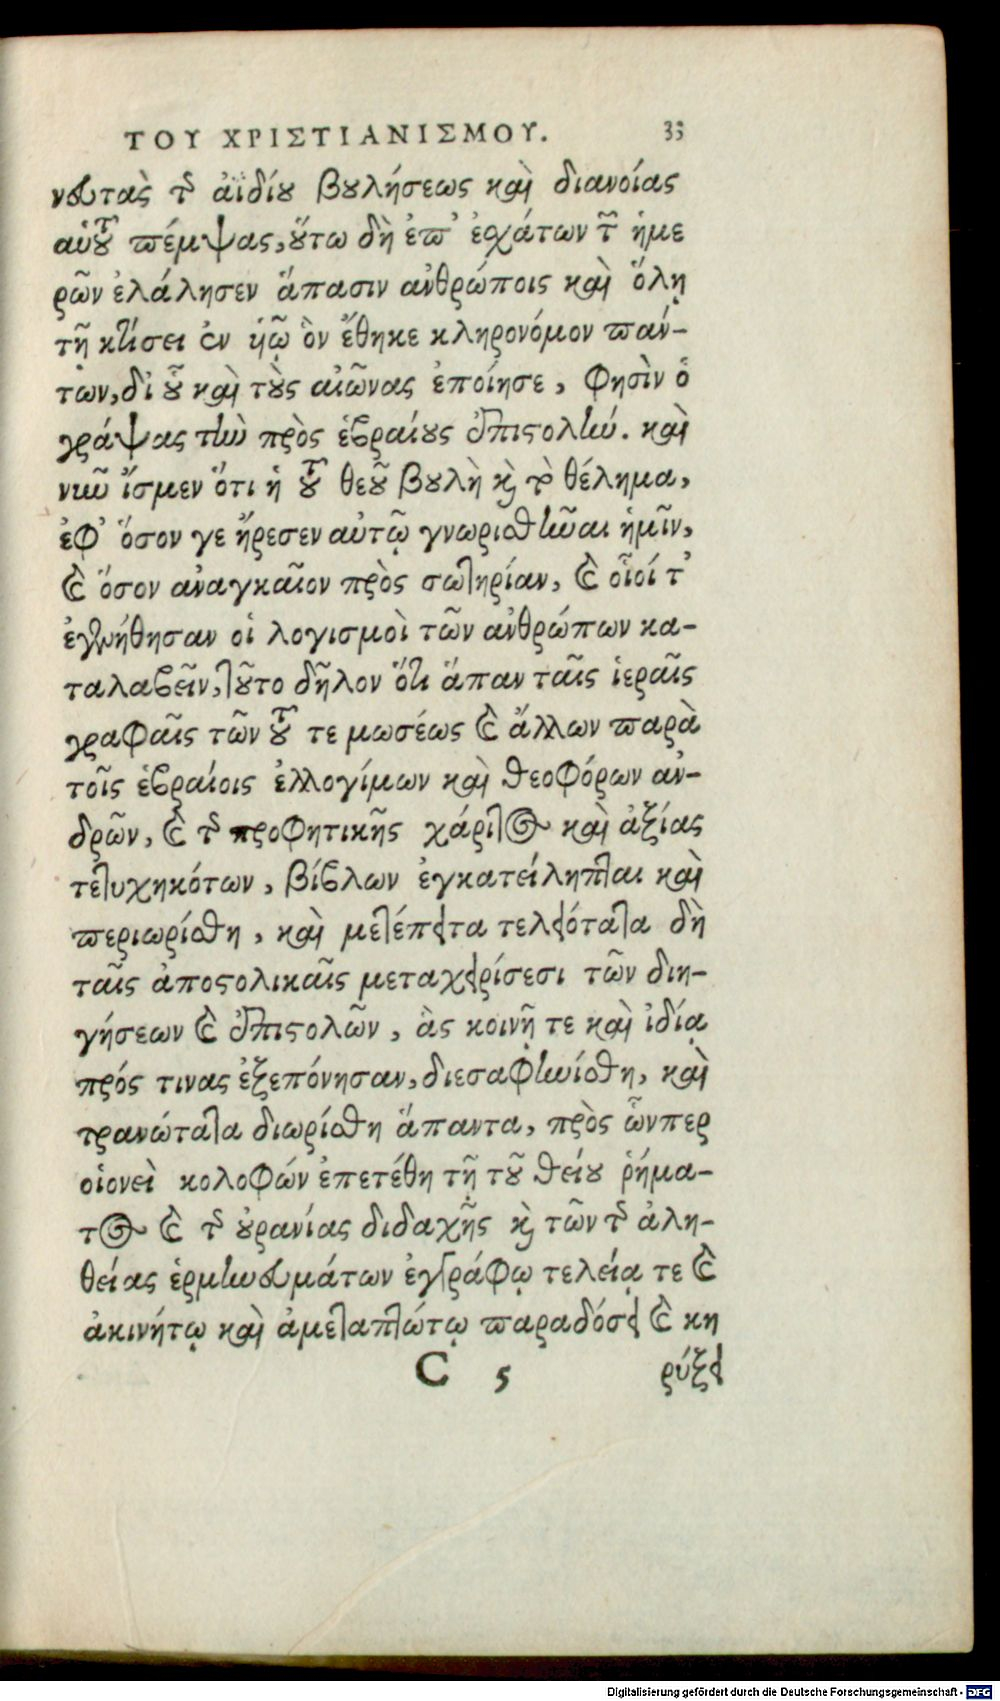 ΤΟΥ ΧΡΙΣΤΙΑΝΙΣΜΟΥ. 33
νευτὰς τῆς ἀϊδίου βουλήσεως καὶ διανοίας
αὑτοῦ πέμψας, οὕτω δὴ ἐπ' ἐσχάτων τῶν ἡμε
ρῶν ἐλάλησεν ἅπασιν ἀνθρώποις καὶ ὅλῃ
τῇ κτίσει ἐν υἱῷ ὃν ἔθηκε κληρονόμον πάν-
των, δι' οὗ καὶ τοὺς αἰῶνας ἐποίησε, φησὶν ὁ
γράψας τὴν πρὸς ἑβραίους ἐπιστολήν. καὶ
νῦν ἴσμεν ὅτι ἡ τοῦ θεοῦ βουλὴ καὶ τὸ θέλημα,
ἐφ' ὅσον γε ἤρεσεν αὐτῷ γνωρισθῆναι ἡμῖν,
καὶ ὅσον ἀναγκαῖον πρὸς σωτηρίαν, καὶ οἷοί τ'
ἐγενήθησαν οἱ λογισμοὶ τῶν ἀνθρώπων κα-
ταλαβεῖν, τοῦτο δῆλον ὅτι ἅπαν ταῖς ἱεραῖς
γραφαῖς τῶν τοῦ τε μωσέως καὶ ἄλλων παρὰ
τοῖς ἑβραίοις ἐλλογίμων καὶ θεοφόρων ἀν-
δρῶν, καὶ τῆς προφητικῆς χάριτος καὶ ἀξίας
τετυχηκότων, βίβλων ἐγκατείληπται καὶ
περιωρίσθη, καὶ μετέπειτα τελειότατα δὴ
ταῖς ἀποστολικαῖς μεταχειρίσεσι τῶν διη-
γήσεων καὶ ἐπιστολῶν, ἃς κοινῇ τε καὶ ἰδίᾳ
πρός τινας ἐξεπόνησαν, διεσαφηνίσθη, καὶ
τρανώτατα διωρίσθη ἅπαντα, πρὸς ὧνπερ
οἱονεὶ κολοφών ἐπετέθη τῇ τοῦ θείου ῥήμα-
τος καὶ τῆς οὐρανίας διδαχῆς καὶ τῶν τῆς ἀλη-
θείας ἑρμηνευμάτων ἐγγράφῳ τελείᾳ τε καὶ
ἀκινήτῳ καὶ ἀμεταπτώτῳ παραδόσει καὶ κη
C 5 ρύξει
Digitalisierung gefördert durch die Deutsche Forschungsgemeinschaft - DFG